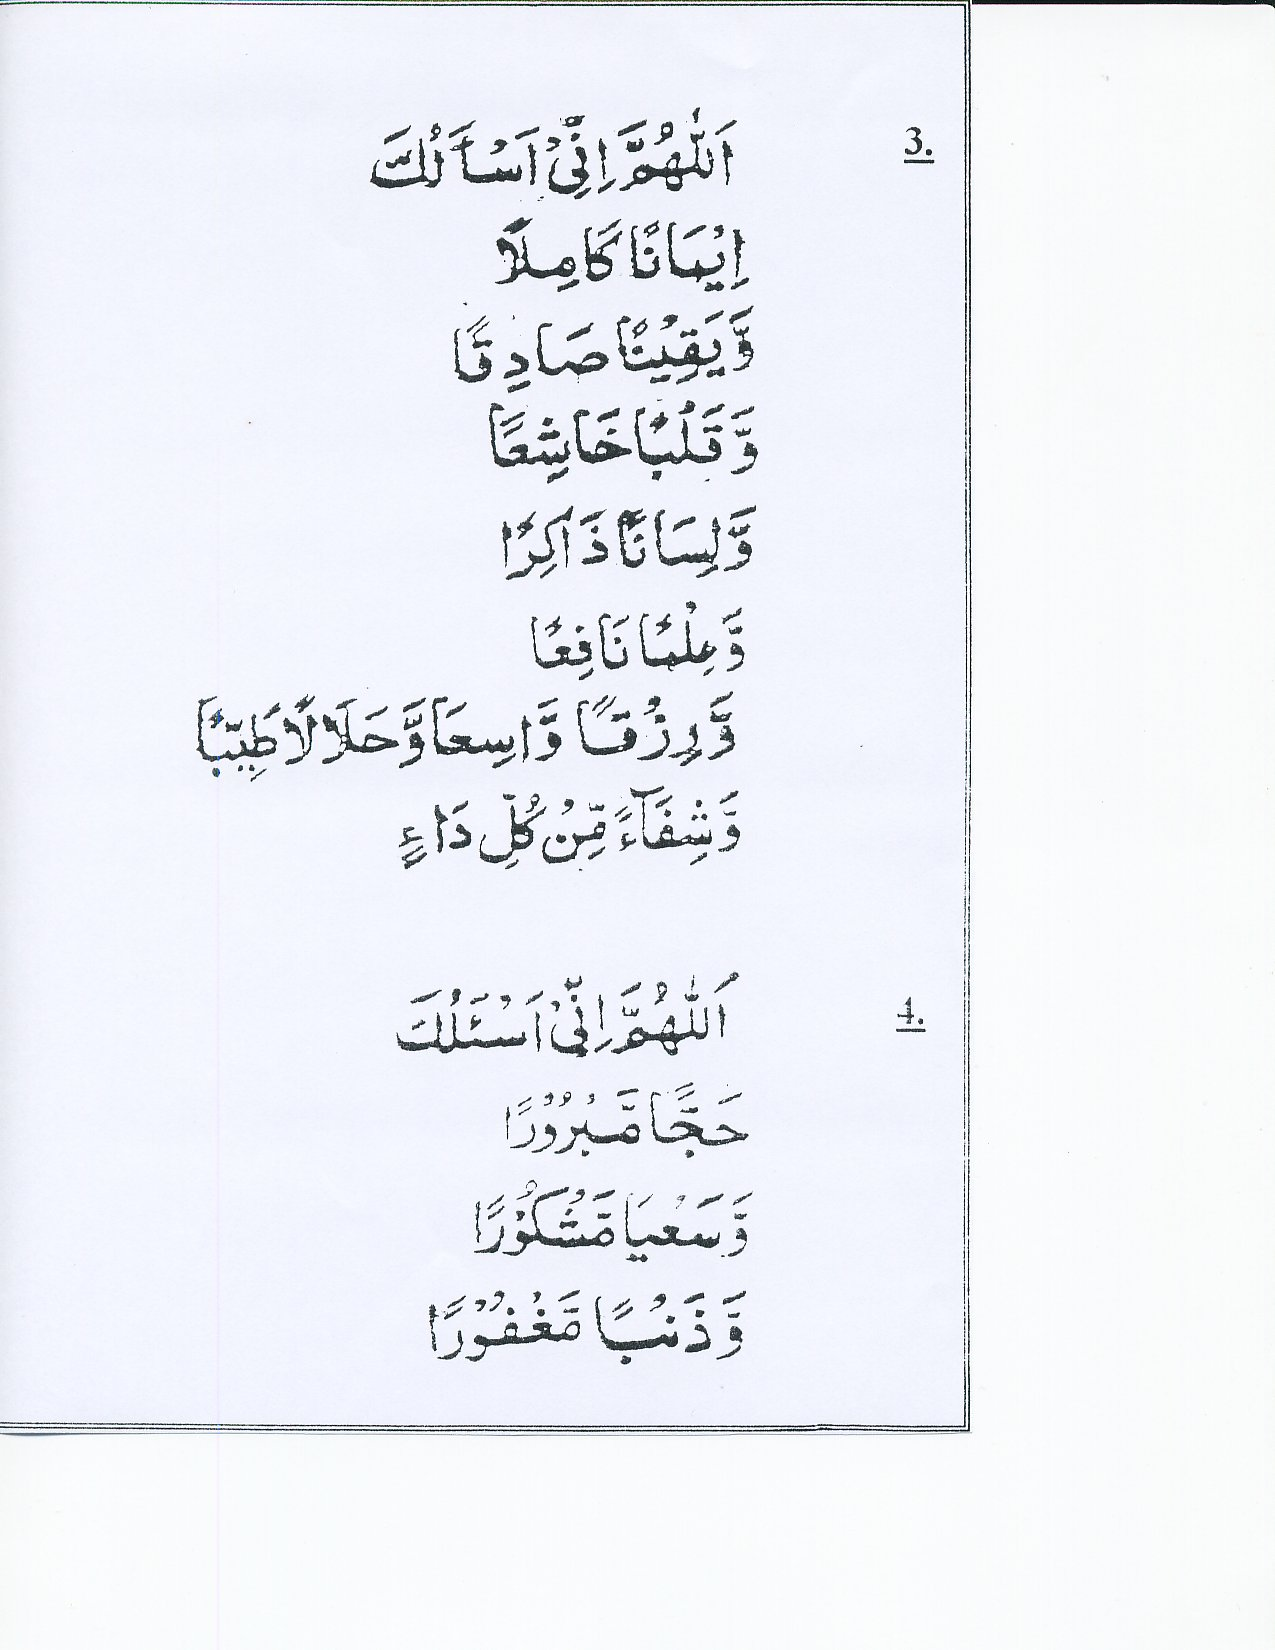 3.
اَللّٰهُمَّ اِنِّيْ اَسْأَلُكَ
اِيْمَانًا كَامِلًا
وَّيَقِيْنًا صَادِقًا
وَّقَلْبًا خَاشِعًا
وَّلِسَانًا ذَاكِرًا
وَّعِلْمًا نَافِعًا
وَّرِزْقًا وَّاسِعًا وَّحَلَالًا طَيِّبًا
وَّشِفَآءً مِّنْ كُلِّ دَاءٍ
4.
اَللّٰهُمَّ اِنِّيْ اَسْئَلُكَ
حَجًّا مَّبْرُوْرًا
وَّسَعْيًا مَّشْكُوْرًا
وَّذَنْبًا مَّغْفُوْرًا